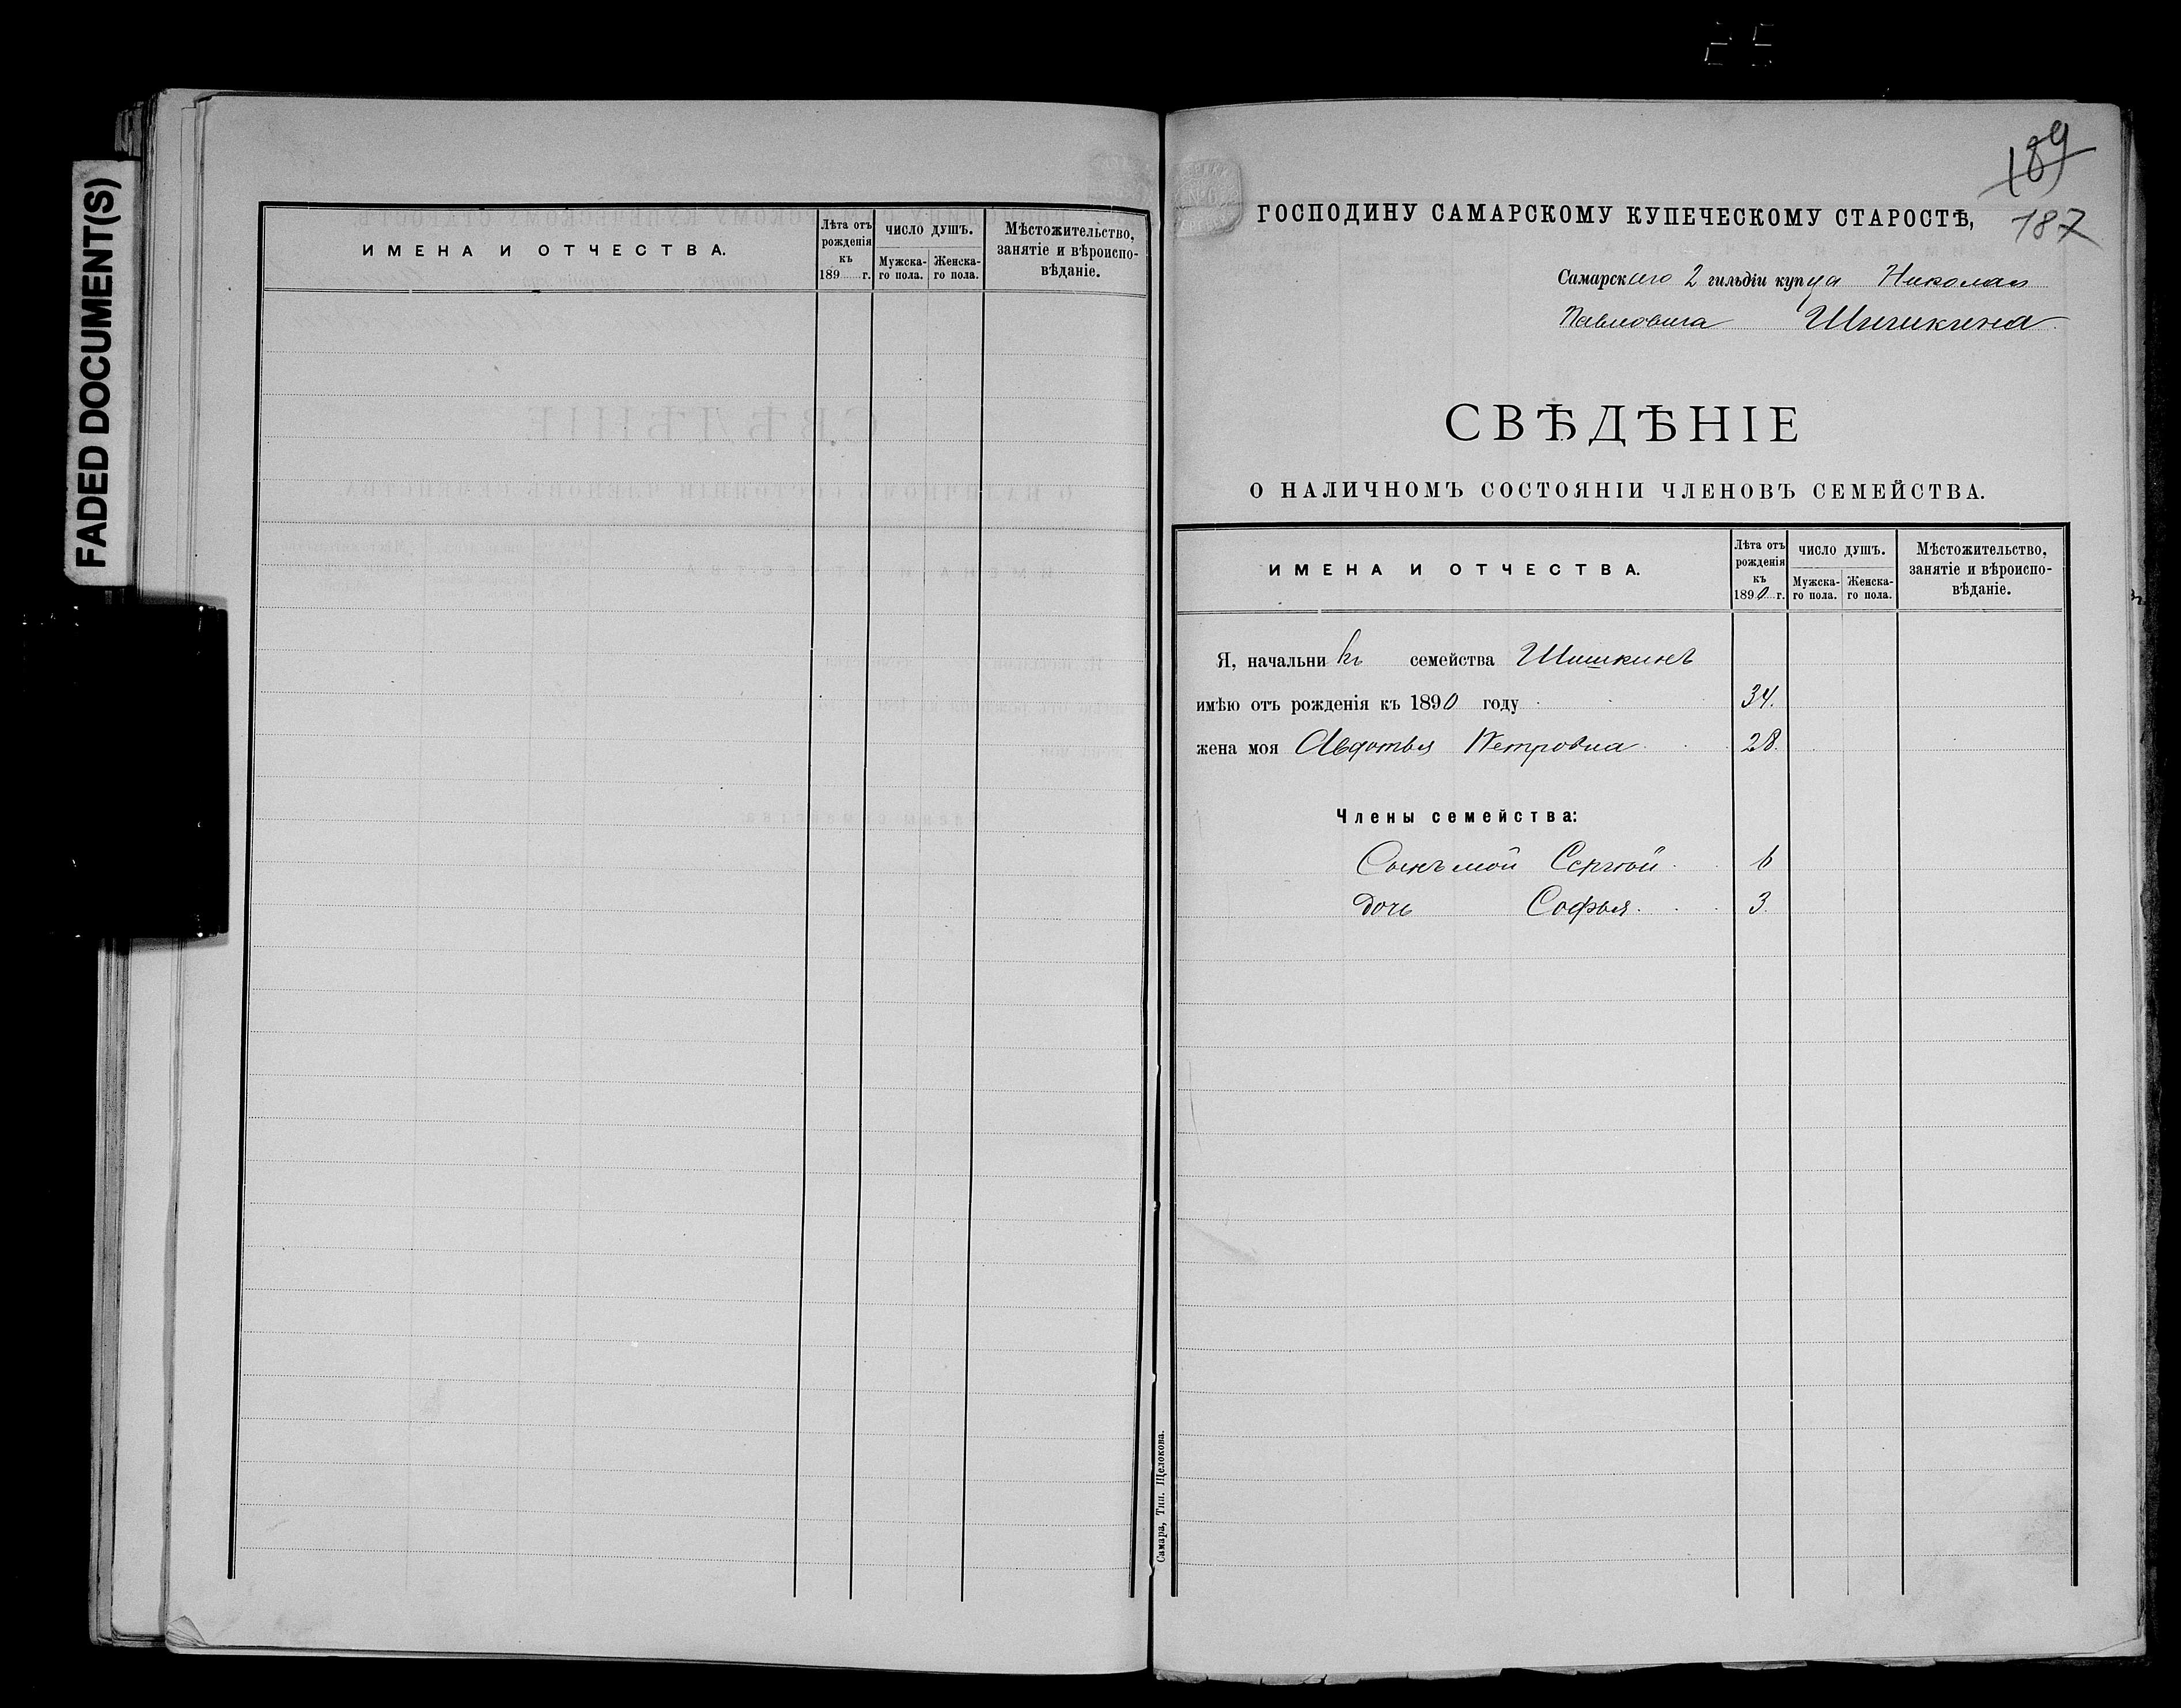 FADED DOCUMENT(S)
ИМЕНА И ОТЧЕСТВА.
Лѣта отъ рожденія къ 189 г.
ЧИСЛО ДУШЪ.
Мужска-го пола.
Женска-го пола.
Мѣстожительство, занятіе и вѣроиспо-вѣданіе.
189
187
ГОСПОДИНУ САМАРСКОМУ КУПЕЧЕСКОМУ СТАРОСТѢ,
Самарскаго 2 гильдіи купца Николая
Павловича Шишкина
СВѢДѢНІЕ
О НАЛИЧНОМЪ СОСТОЯНІИ ЧЛЕНОВЪ СЕМЕЙСТВА.
ИМЕНА И ОТЧЕСТВА.
Лѣта отъ рожденія къ 1890 г.
ЧИСЛО ДУШЪ.
Мужска-го пола.
Женска-го пола.
Мѣстожительство, занятіе и вѣроиспо-вѣданіе.
Я, начальникъ семейства Шишкинъ
имѣю отъ рожденія къ 1890 году 34.
жена моя Авдотья Петровна 28.
Члены семейства:
Сынъ мой Сергѣй 6
дочь Софья 3.
Самара, Тип. Щелокова.